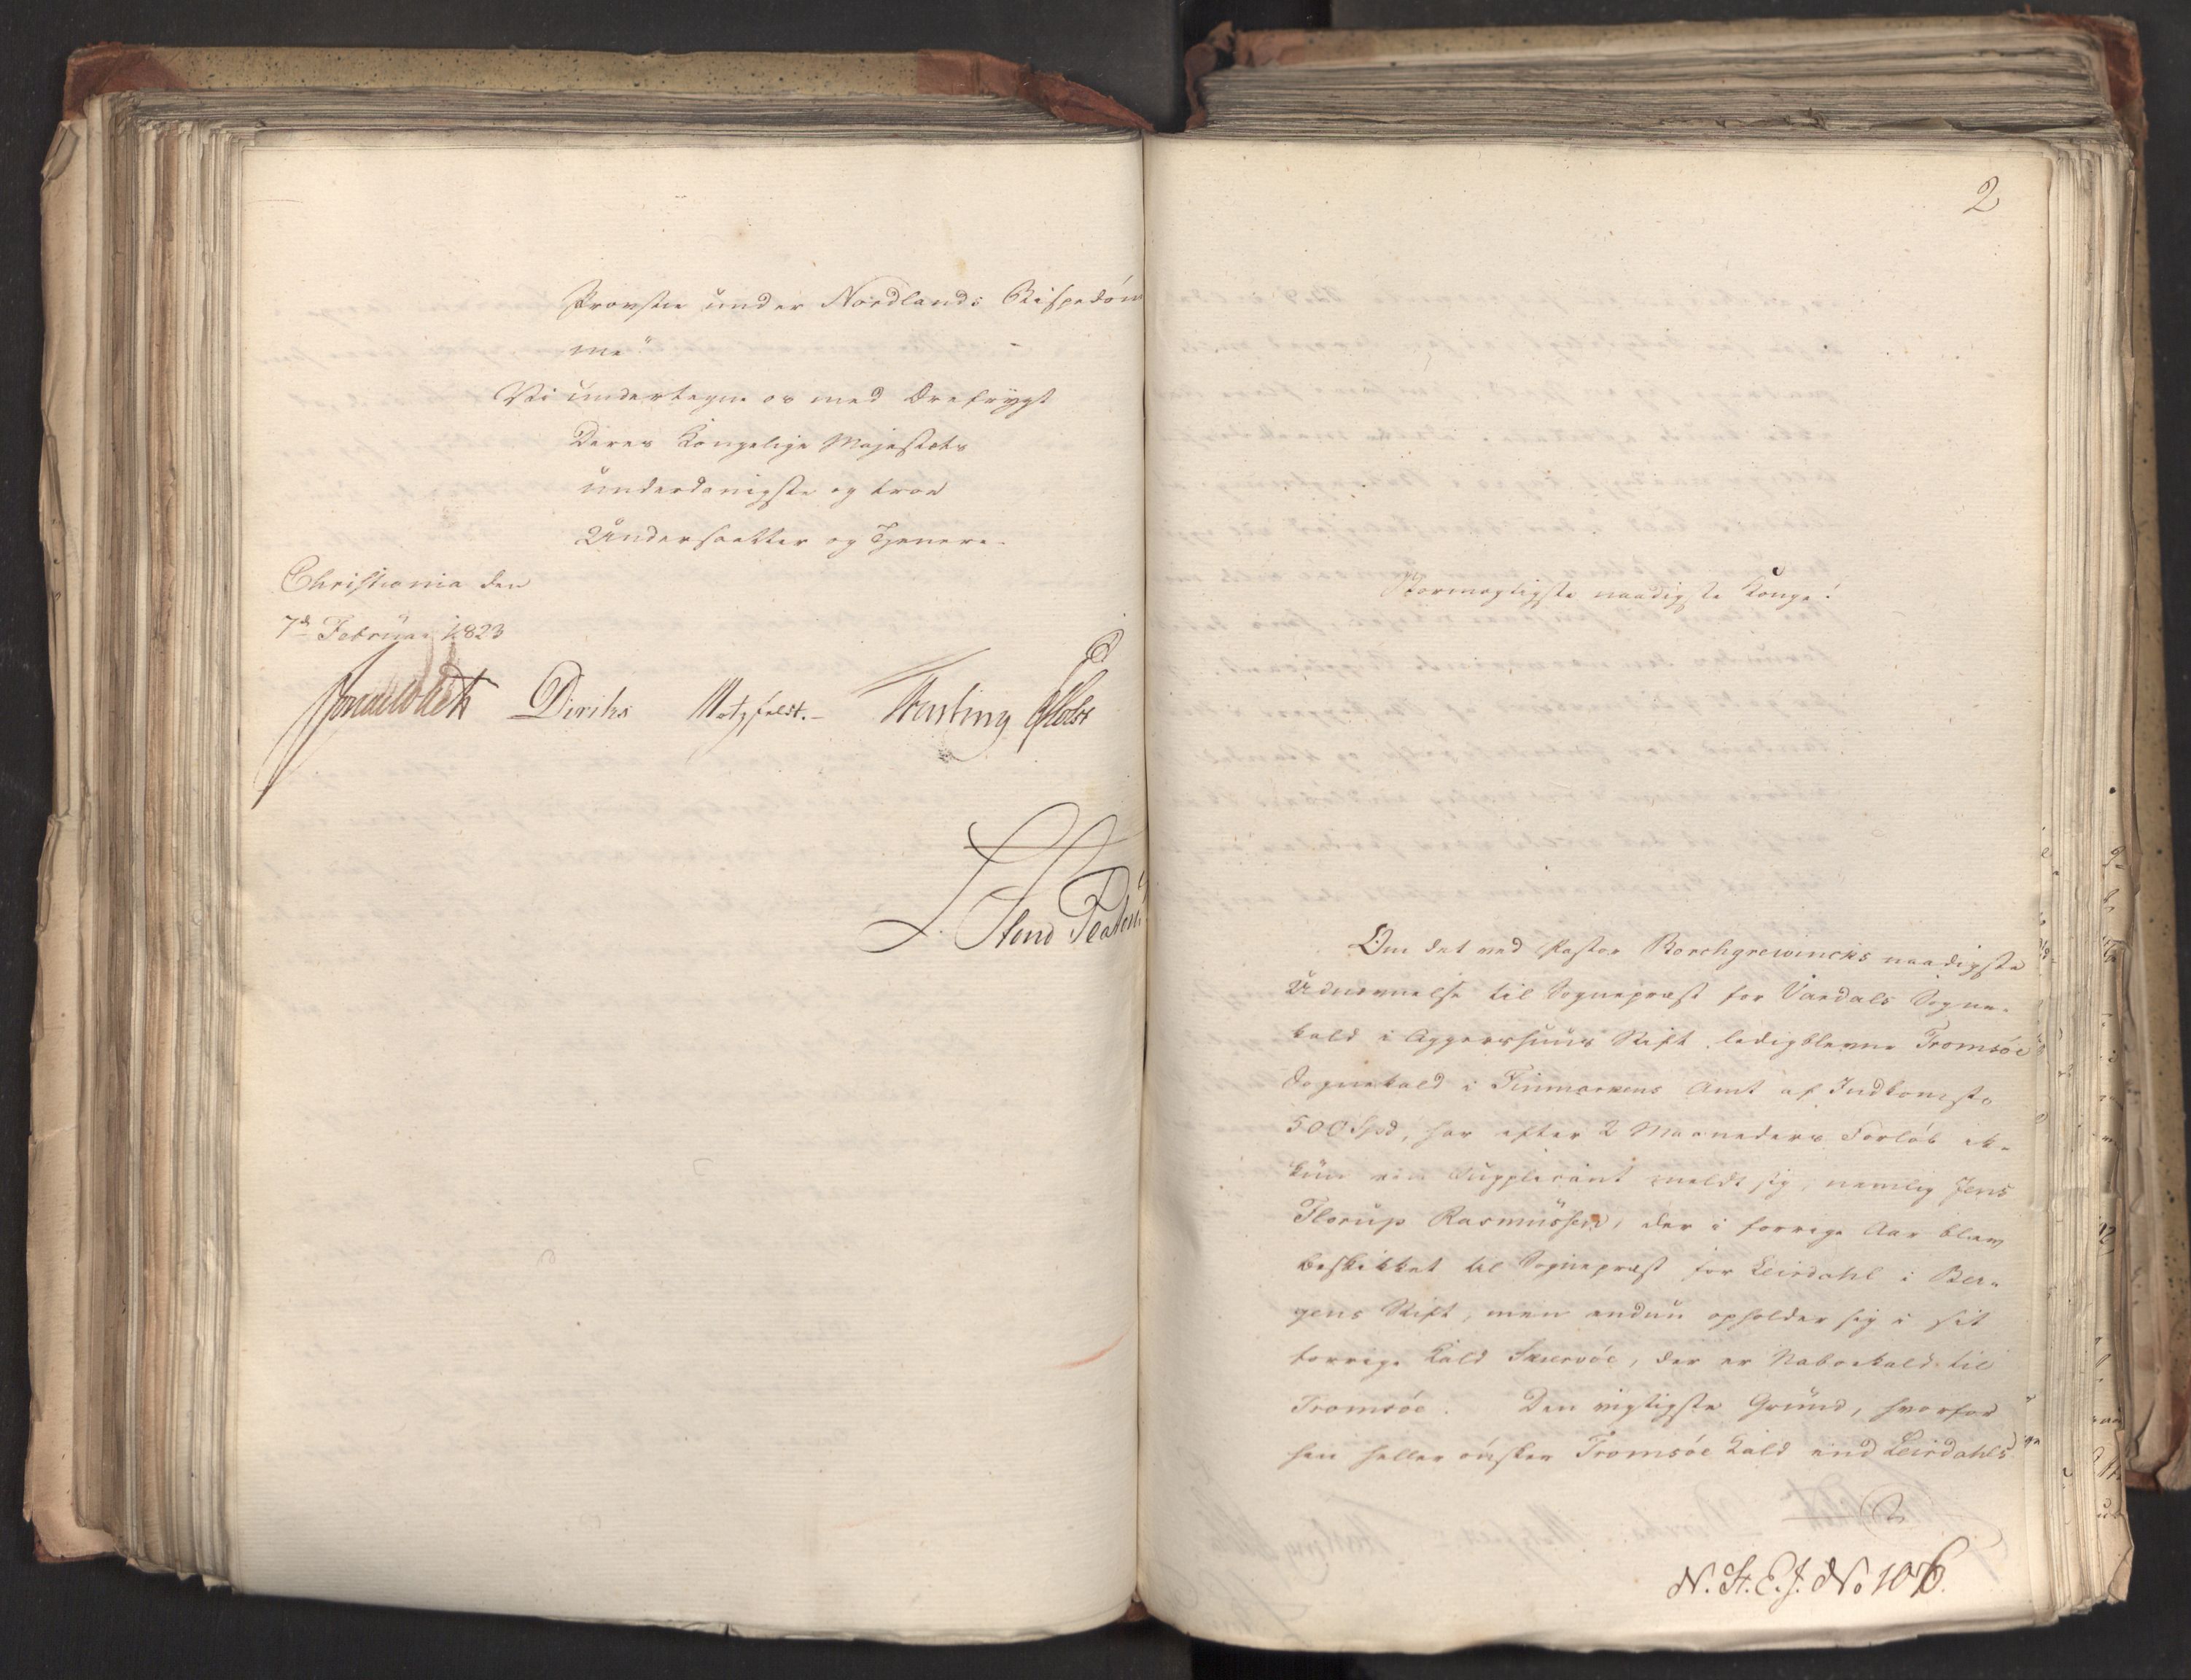 Provstie under Nordlands Bispedöm
me"
Vi undertegne os med Ærefrygt
Deres Kongelige Majestæts
underdanigste og troe
Undersaatter og Tjenere.
Christiania den
7d Februar 1823
Sommerhielm Diriks Motzfeldt. Fasting Holst
2
Stormægtigste naadigste Konge!
Om det ved Pastor Borchgrewincks naadigste
Udnævnelse til Sognepræst for Vardals Sogne-
kald i Aggershuus Stift ledigblevne Tromsöe
Sognekald i Finmarkens Amt af Indkomst
500 Spd, har efter 2 Maaneders Forlöb ik-
kun een Supplicant meldt sig, nemlig Jens
Florup Rasmussen, der i forrige Aar blev
beskikket til Sognepræst for Leirdahl i Ber-
gens Stift, men endnu opholder sig i sit
forrige Kald Skiervöe, der er Nabokald til
Tromsöe. Den vigtigste Grund, hvorfor
han heller önsker Tromsöe Kald end Leirdahls
N. St. E. J. No 106.